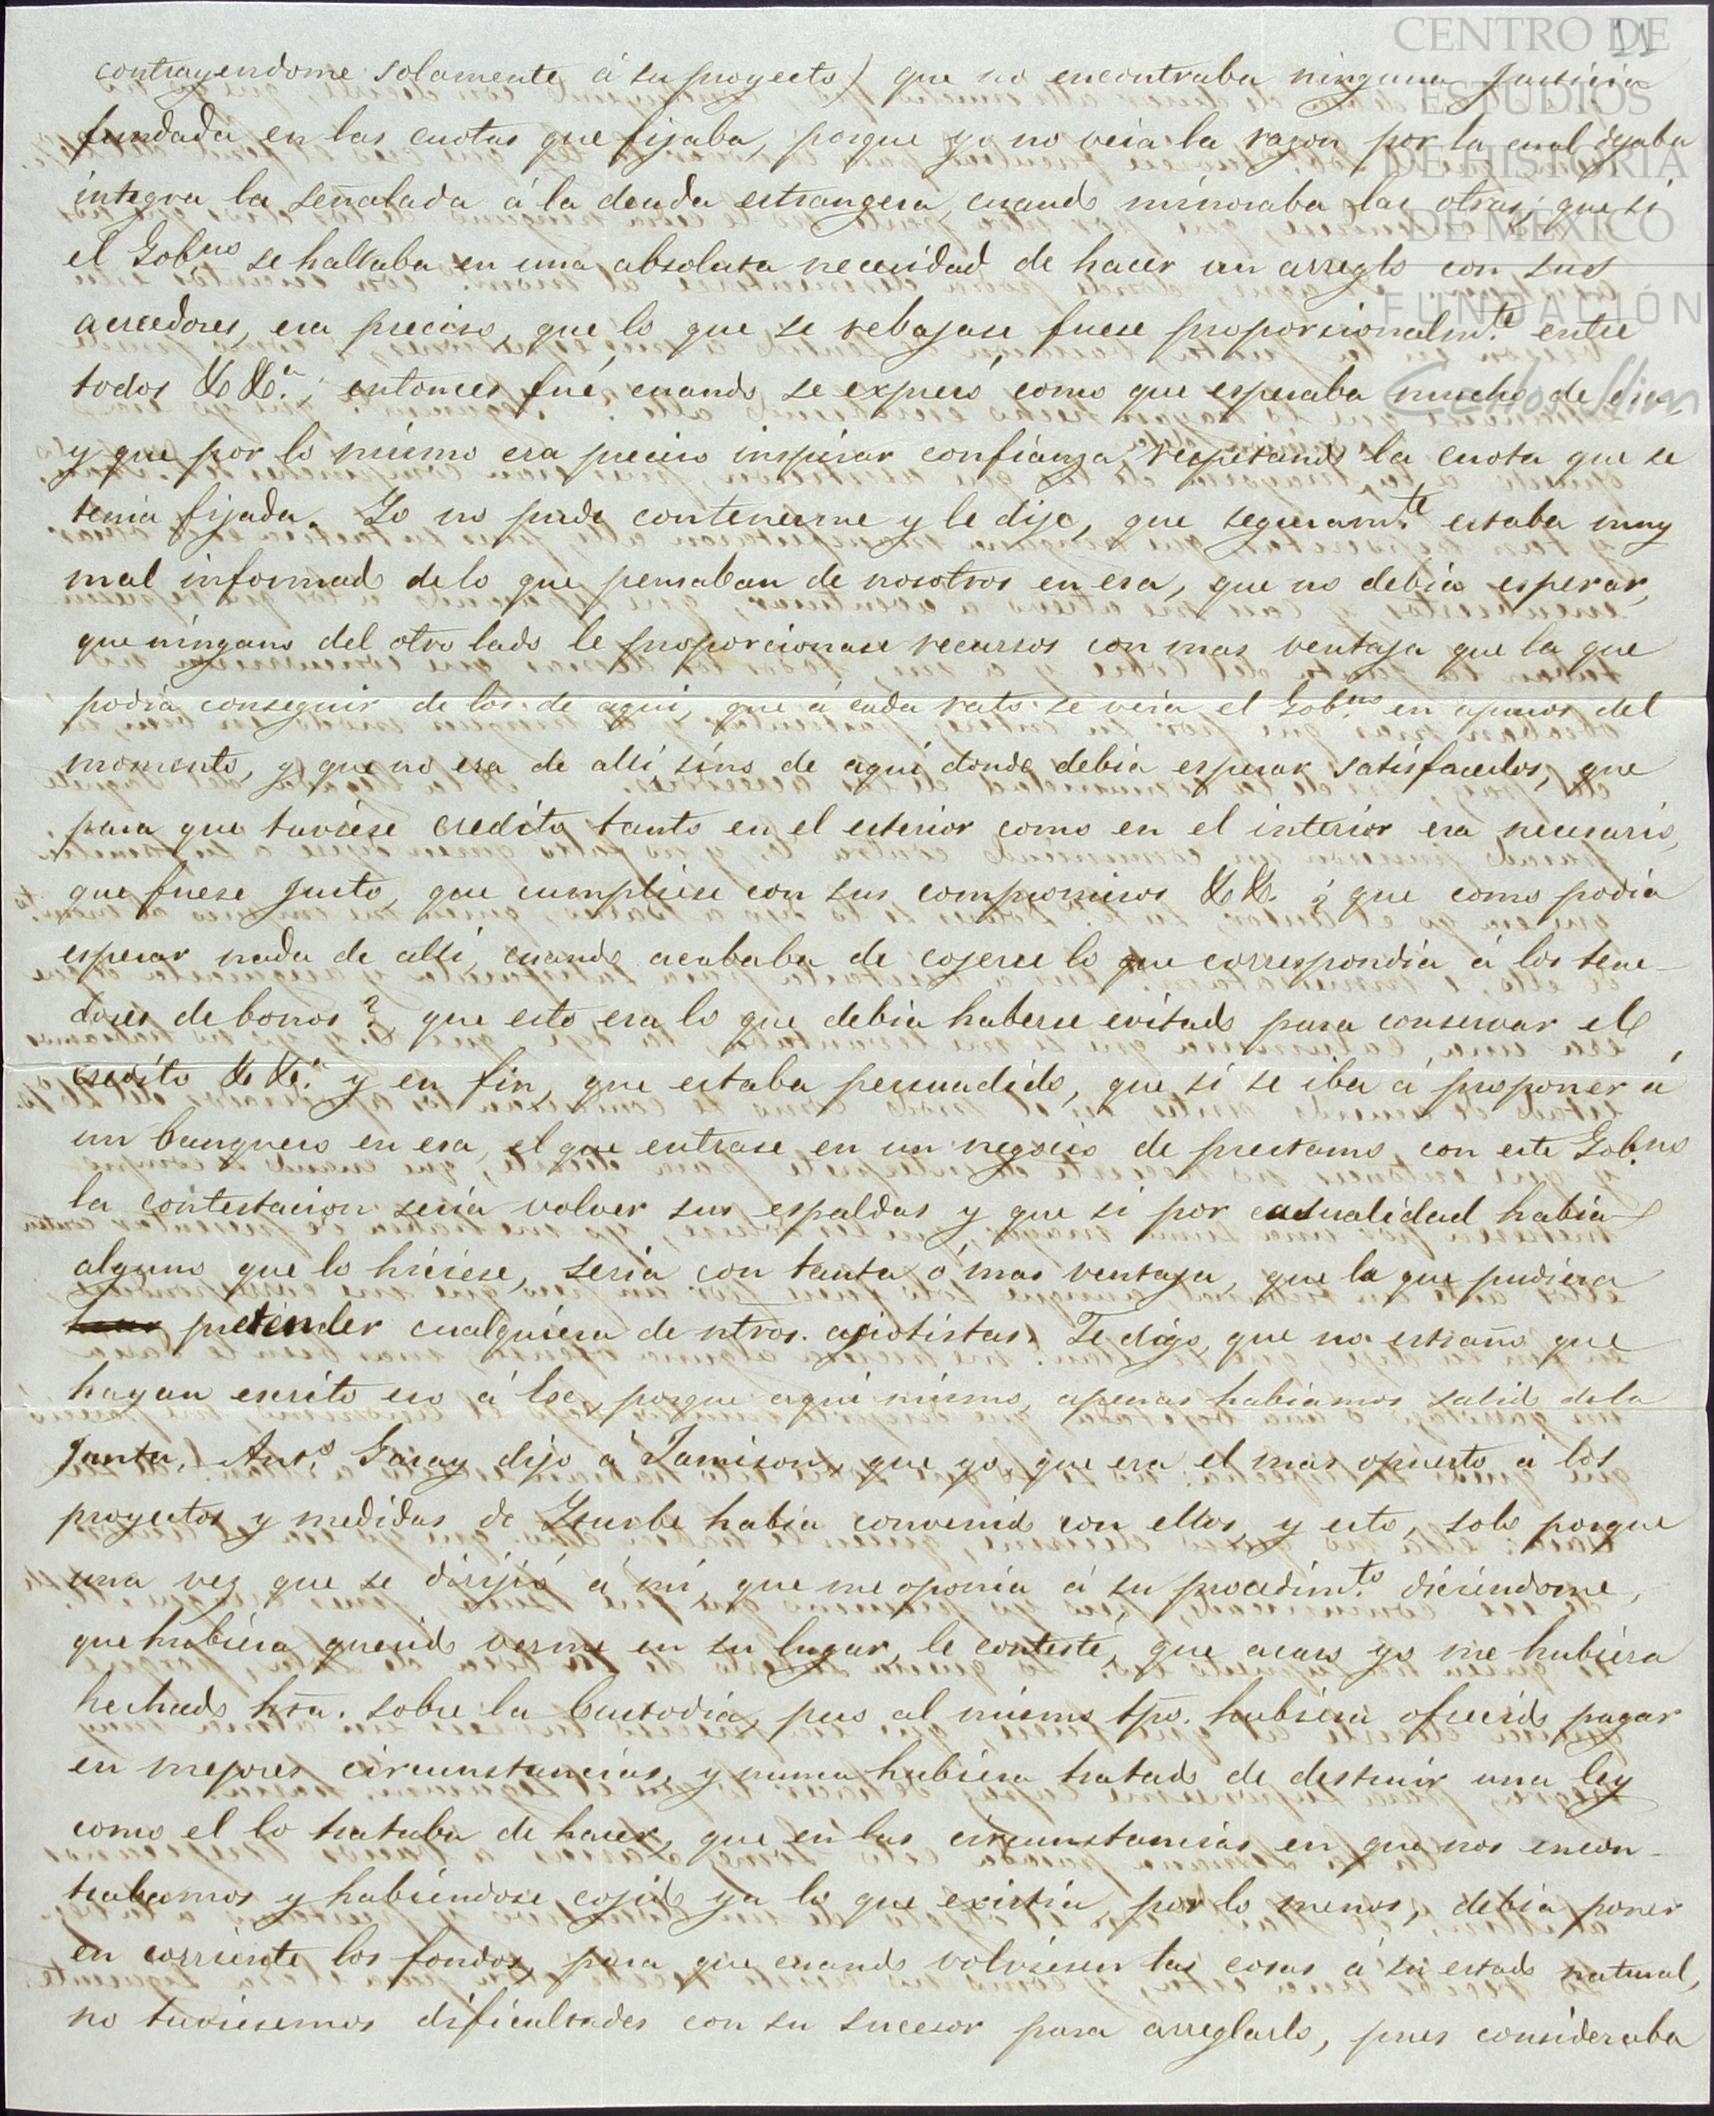 CENTRO DE
ESTUDIOS
DE HISTORIA
DE MÉXICO
FUNDACIÓN
Carlos Slim
11
contrayendome solamente á su proyecto) que no encontraba ninguna justicia
fundada en las cuotas que fijaba, porque yo no veia la razon por la cual dejaba
integra la señalada á la deuda estrangera, cuando minoraba las otras; que si
el Gob.no se hallaba en una absoluta necesidad de hacer un arreglo con sus
acreedores, era preciso, que lo que se rebajase fuese proporcionalm.te entre
todos &c &c.a; entonces fué, cuando se expresó, como que esperaba mucho de esa,
y que por lo mismo era preciso inspirar confianza, respetando la cuota que se
tenia fijada. Yo no pude contenerme y le dije, que seguram.te estaba muy
mal informado de lo que pensaban de nosotros en esa, que no debia esperar,
que ninguno del otro lado le proporcionase recursos con mas ventaja que la que
podia conseguir de los de aqui, que á cada rato se veia el Gob.no en apuros del
momento, y que no era de alli sino de aqui donde debia esperar satisfacerlos, que
para que tuviese credito tanto en el esterior como en el interior era necesario,
que fuese justo, que cumpliese con sus compromisos &c &c. ¿que como podia
esperar nada de alli, cuando acababa de cojerse lo que correspondia á los tene-
dores de bonos? que esto era lo que debia haberse evitado para conservar el
credito &c &c.a y en fin, que estaba persuadido, que si se iba á proponer á
un banquero en esa, el que entrase en un negocio de prestamo con este Gob.no
la contestacion seria volver sus espaldas y que si por casualidad habia
alguno que lo hiciese, seria con tanta ó mas ventaja, que la que pudiera
pretender cualquiera de ntros. agiotistas. Te digo, que no estraño que
hayan escrito eso á ese, porque aqui mismo, apenas habiamos salido de la
Junta, Ant.o Garay dijo á Jamison, que yo, que era el mas opuesto á los
proyectos y medidas de Yturbe habia convenido con ellos, y esto, solo porque
una vez que se dirijió á mi, que me oponia á su procedim.to diciendome,
que hubiera querido verme en su lugar, le contesté, que acaso yo me hubiera
hechado hta. sobre la Custodia, pero al mismo tpo. hubiera ofrecido pagar
en mejores circunstancias, y nunca hubiera tratado de destruir una ley
como el lo trataba de hacer, que en las circunstancias en que nos encon-
trabamos y habiendose cojido ya lo que existia, por lo menos, debia poner
en corriente los fondos, para que cuando volviesen las cosas á su estado natural,
no tuviesemos dificultades con su sucesor para arreglarlo, pues consideraba